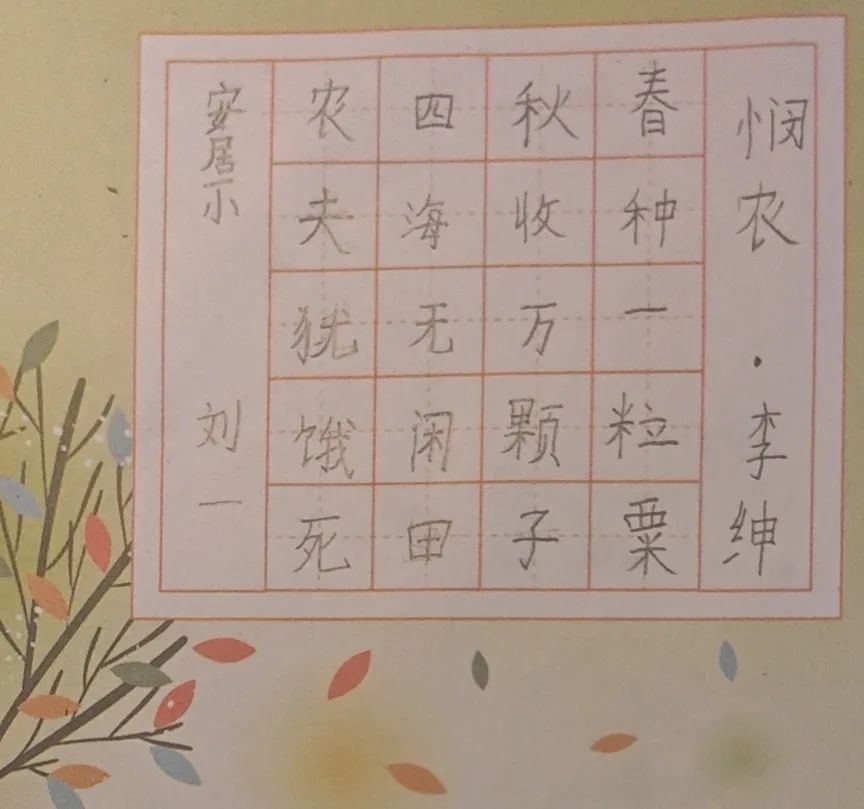 悯农·李绅
春种一粒粟
秋收万颗子
四海无闲田
农夫犹饿死
安居小 刘一